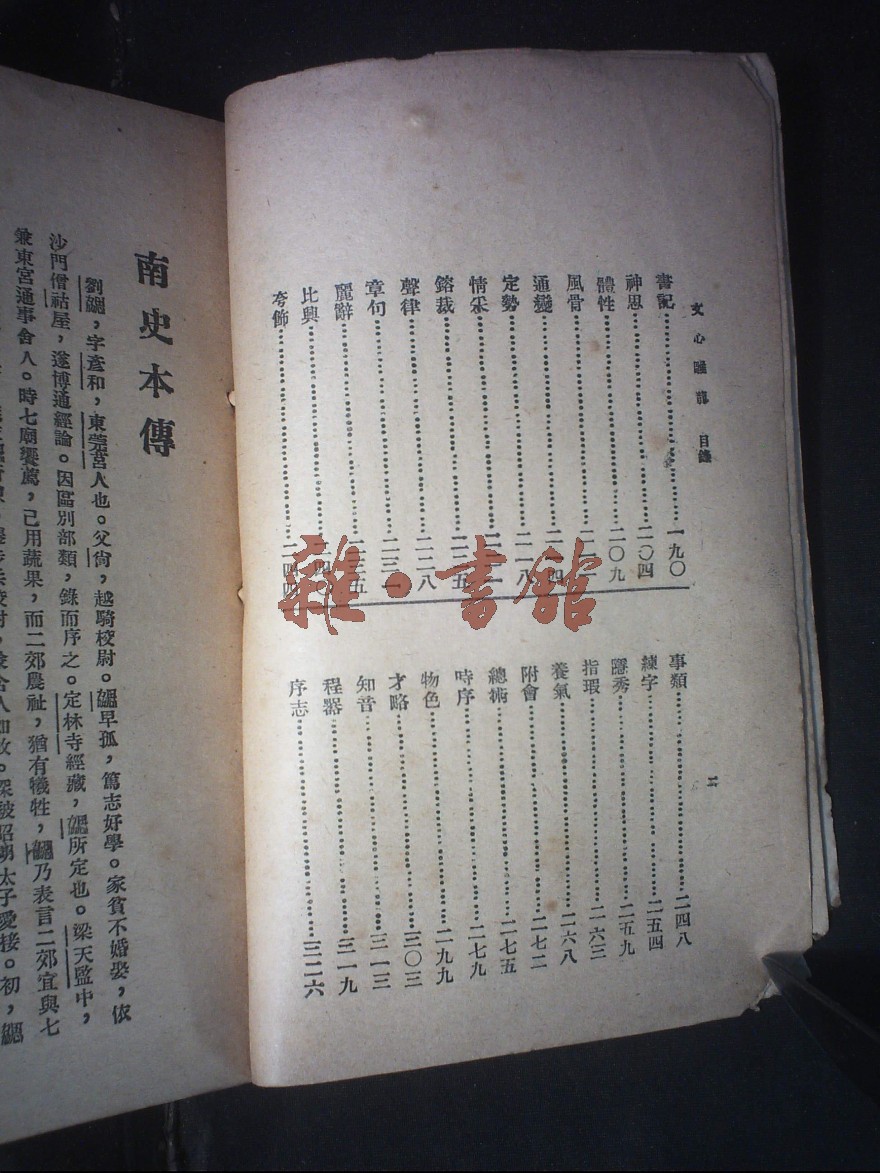 文心雕龍 目錄
二
書記……一九〇
神思……二〇四
體性……二〇九
風骨……二一
通變……二一四
定勢……二一八
情采……二二一
鎔裁……二二五
聲律……二二八
章句……二三一
麗辭……二三五
比興……二四
夸飾……二四四
事類……二四八
練字……二五四
隱秀……二五九
指瑕……二六三
養氣……二六八
附會……二七二
總術……二七五
時序……二七九
物色……二九九
才略……三〇三
知音……三一三
程器……三一九
序志……三二六
雜·書館
南史本傳
劉勰,字彥和,東莞莒人也。父尙,越騎校尉。勰早孤,篤志好學。家貧不婚娶,依
沙門僧祐居,遂博通經論。因區別部類,錄而序之。定林寺經藏,勰所定也。梁天監中,
兼東宮通事舍人。時七廟饗薦,已用蔬果,而二郊農社,猶有犧牲,勰乃表言二郊宜與七
深被昭明太子愛接。初,勰